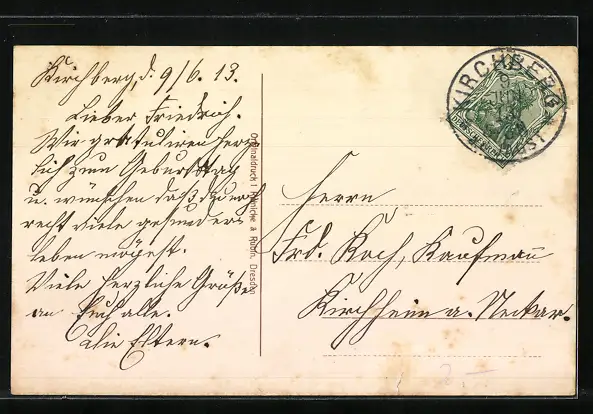 Kirchberg, d. 9/6. 13.
Lieber Friedrich.
Wir gratuliren herz
lich zum Geburtstag
u. wünschen daß du noch
recht viele gesunder
leben mögest.
Viele herzliche Grüße
an Euch alle.
die Eltern.
Originaldruck Hänicke & Rudin, Dresden
KIRCHBERG
Herrn
Frd. Koch, Kaufmann
Kirchheim a. Neckar.
2,–